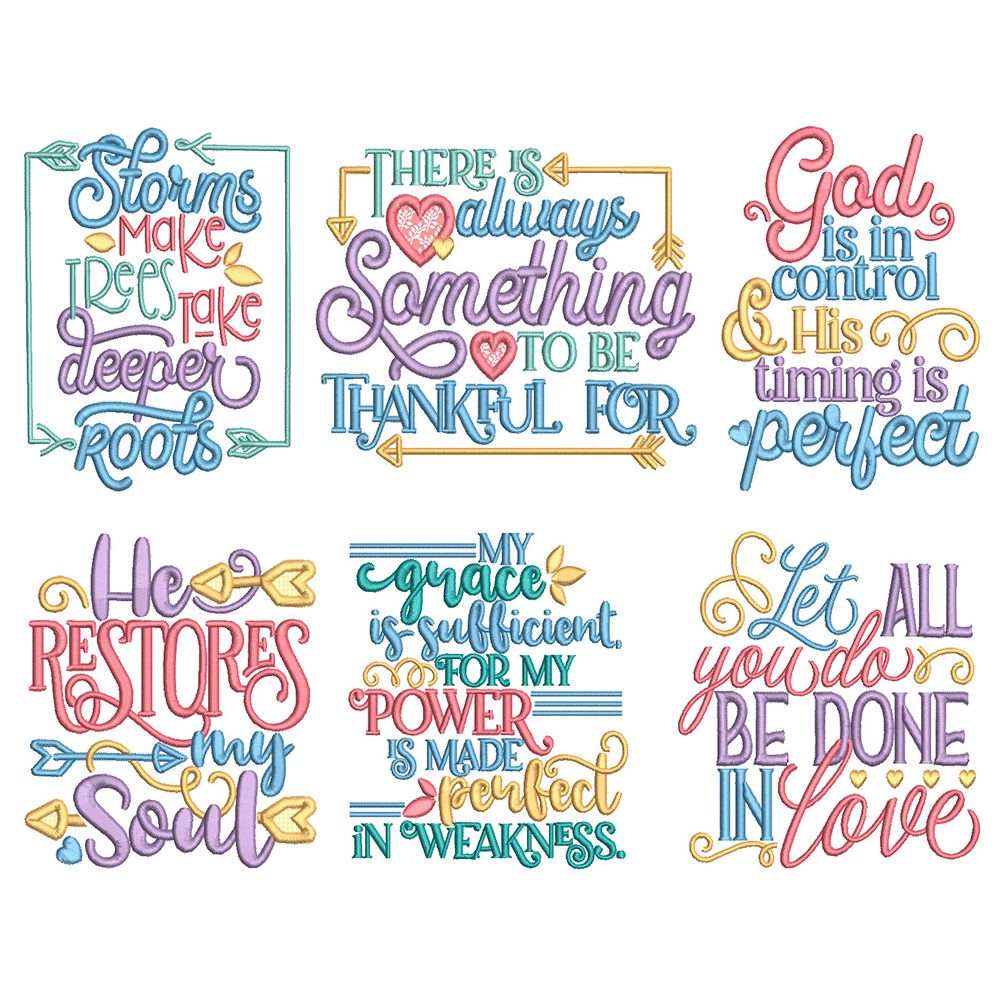 Storms
MAKE
TREES TAKE
deeper
ROOTS
THERE IS
always
Something
TO BE
THANKFUL FOR
God
is in
control
& His
timing is
perfect
He
RESTORES
my
Soul
MY
grace
is sufficient,
FOR MY
POWER
IS MADE
perfect
IN WEAKNESS.
Let ALL
you do
BE DONE
IN love